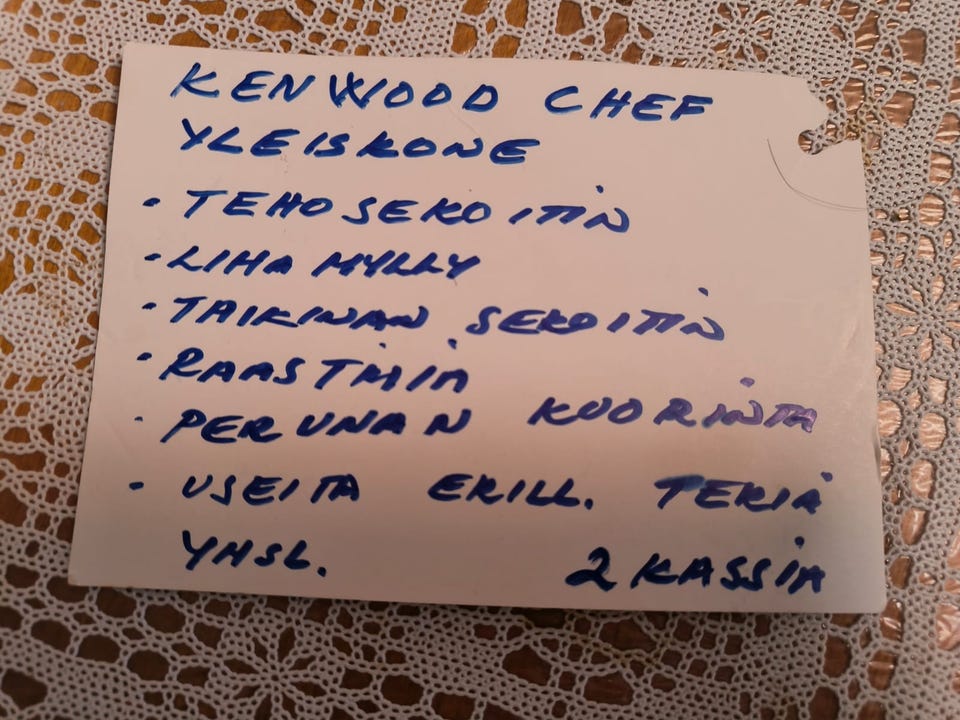 KENWOOD CHEF
YLEISKONE
• TEHOSEKOITIN
• LIHA MYLLY
• TAIKINAN SEKOITIN
• RAASTIMIA
• PERUNAN KUORINTA
• USEITA ERILL. TERIÄ
YHSL. 2 KASSIA